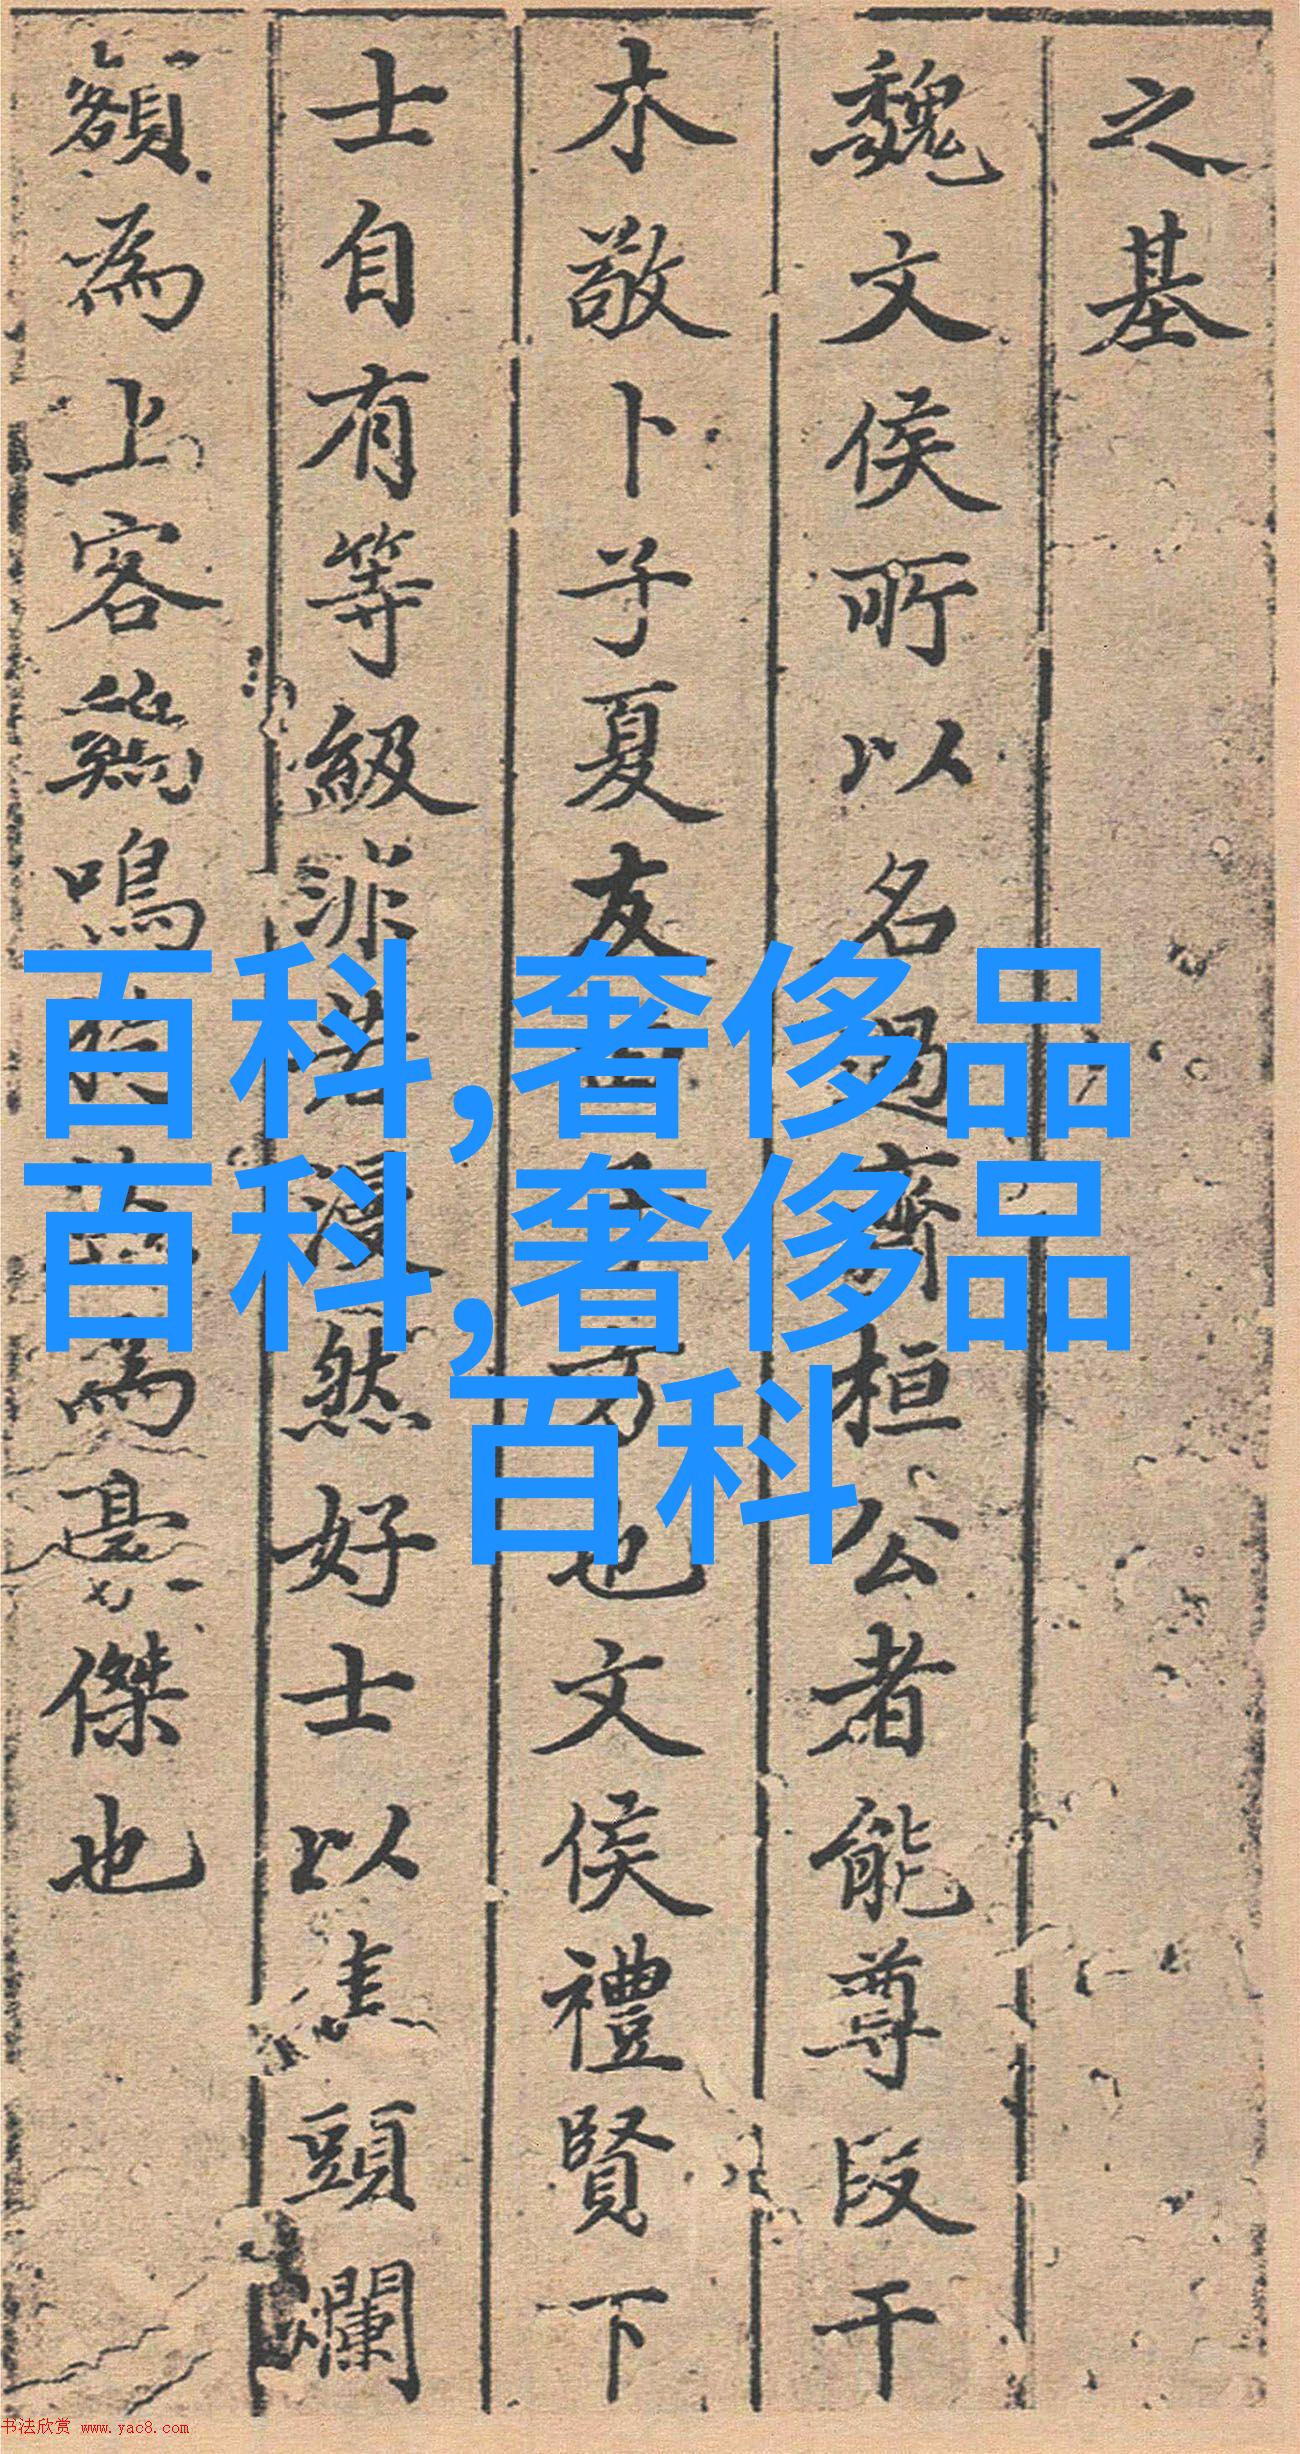 之基
魏文侯所以名過齊桓公者能尊段干
木敬卜子夏友子方也文侯禮賢下
士自有等級非若漫然好士以焦頭爛
額為上客鷄鳴為豪傑也
百科,奢侈品
百科,奢侈品
百科
书法欣赏 www.yac8.com